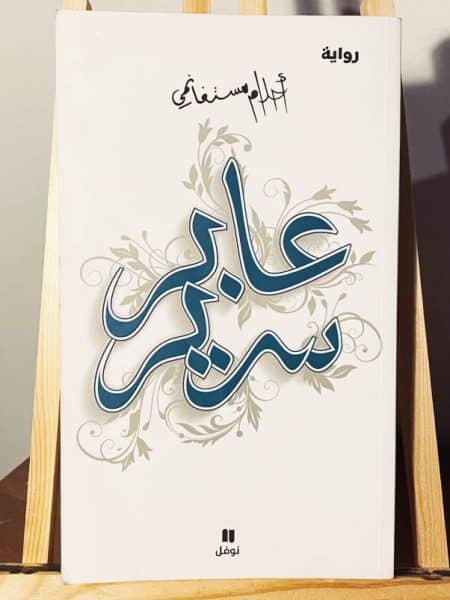 رواية
أحلام مستغانمي
عابر
سرير
نوفل